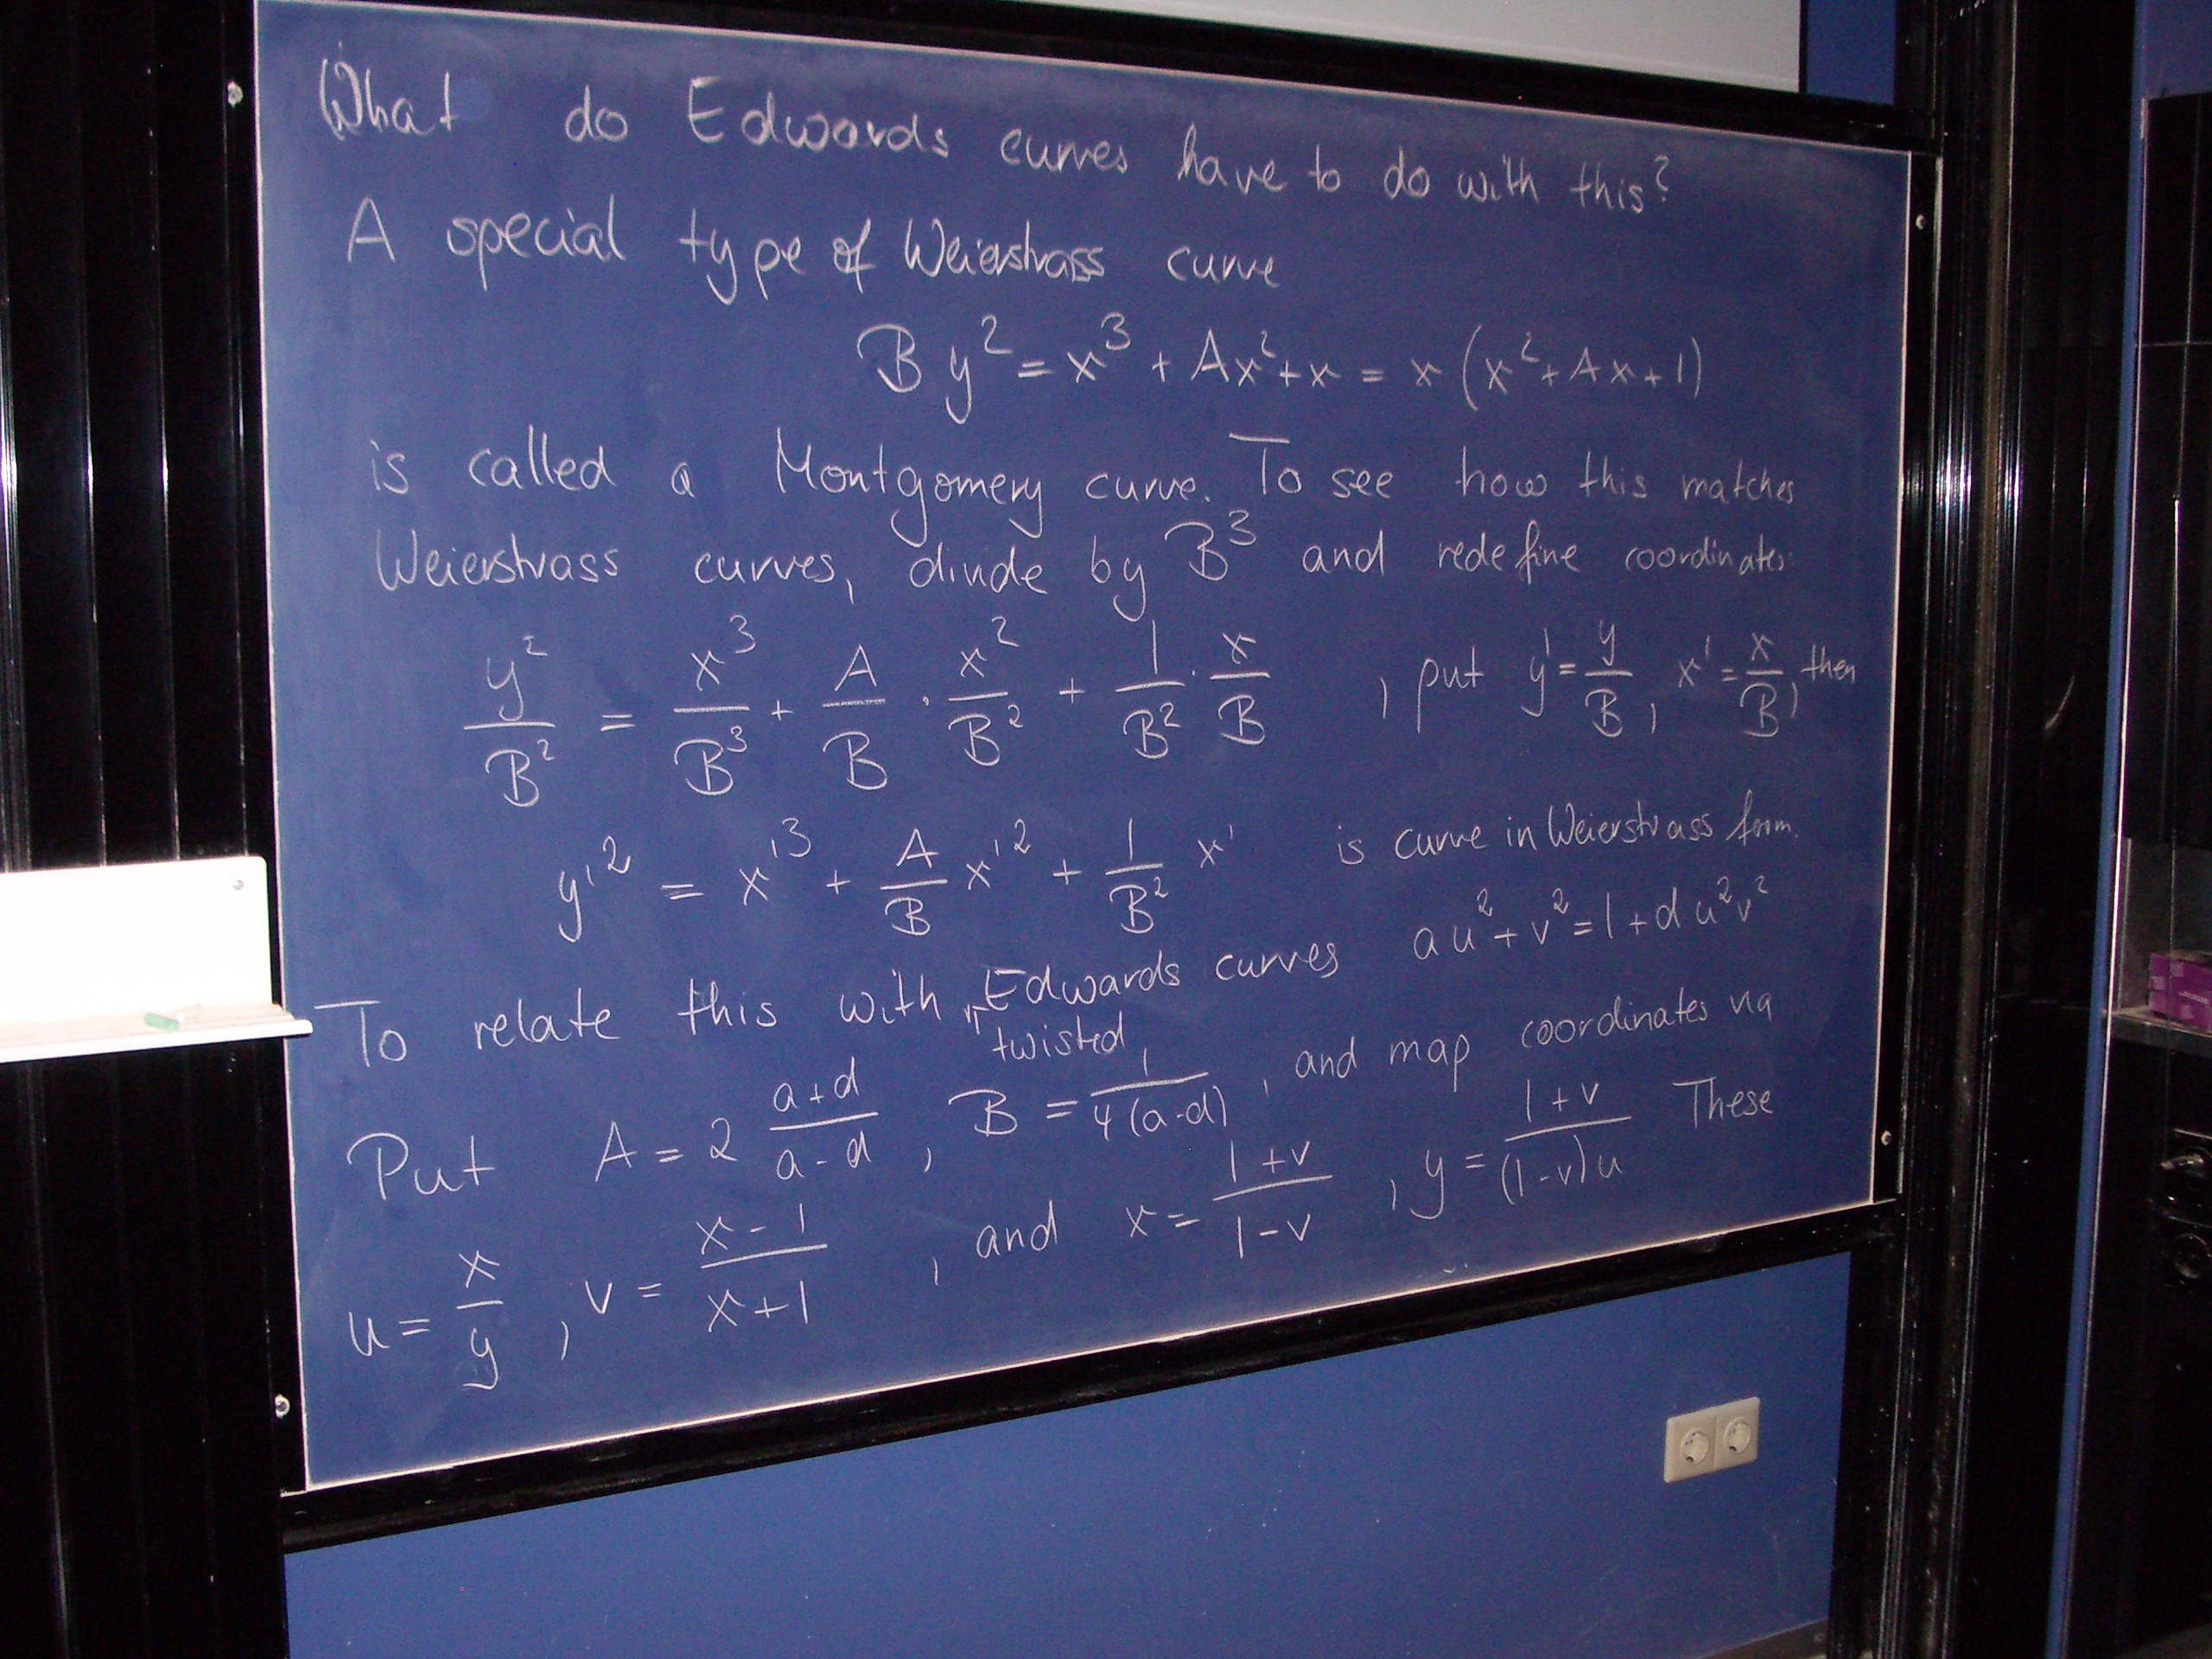 What do Edwards curves have to do with this?
A special type of Weierstrass curve
By² = x³ + Ax² + x = x (x² + Ax + 1)
is called a Montgomery curve. To see how this matches
Weierstrass curves, divide by B³ and redefine coordinates:
y²/B² = x³/B³ + A/B · x²/B² + 1/B² · x/B , put y' = y/B, x' = x/B, then
y'² = x'³ + A/B x'² + 1/B² x' is curve in Weierstrass form.
To relate this with twisted Edwards curves au² + v² = 1 + du²v²
Put A = 2 (a+d)/(a-d), B = 1/(4(a-d)), and map coordinates via
u = x/y, v = (x-1)/(x+1), and x = (1+v)/(1-v), y = (1+v)/((1-v)u) These